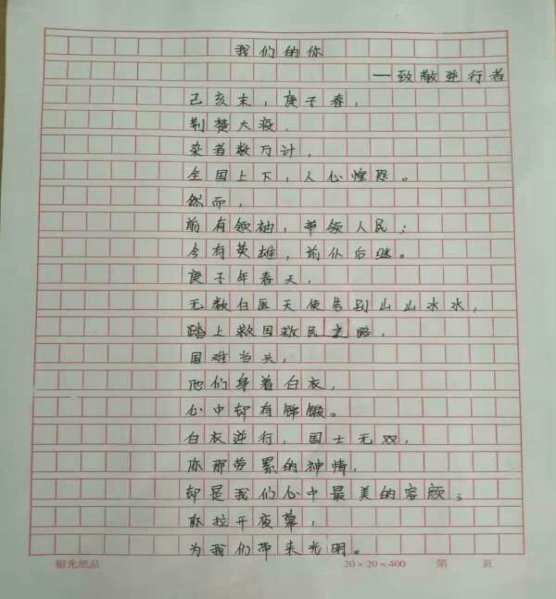 我们的你
——致敬逆行者
己亥末，庚子春，
荆楚大疫，
染者数万计，
全国上下，人心惶恐。
然而，
前有领袖，带领人民；
今有英雄，前仆后继。
庚子年春天，
无数白医天使告别山山水水，
踏上救国救民之路，
国难当头，
他们身着白衣，
心中却有锦缎。
白衣逆行，国士无双，
亦那劳累的神情，
却是我们心中最美的容颜；
亦拉开夜幕，
为我们带来光明。
银光纸品
20×20=400 第 页